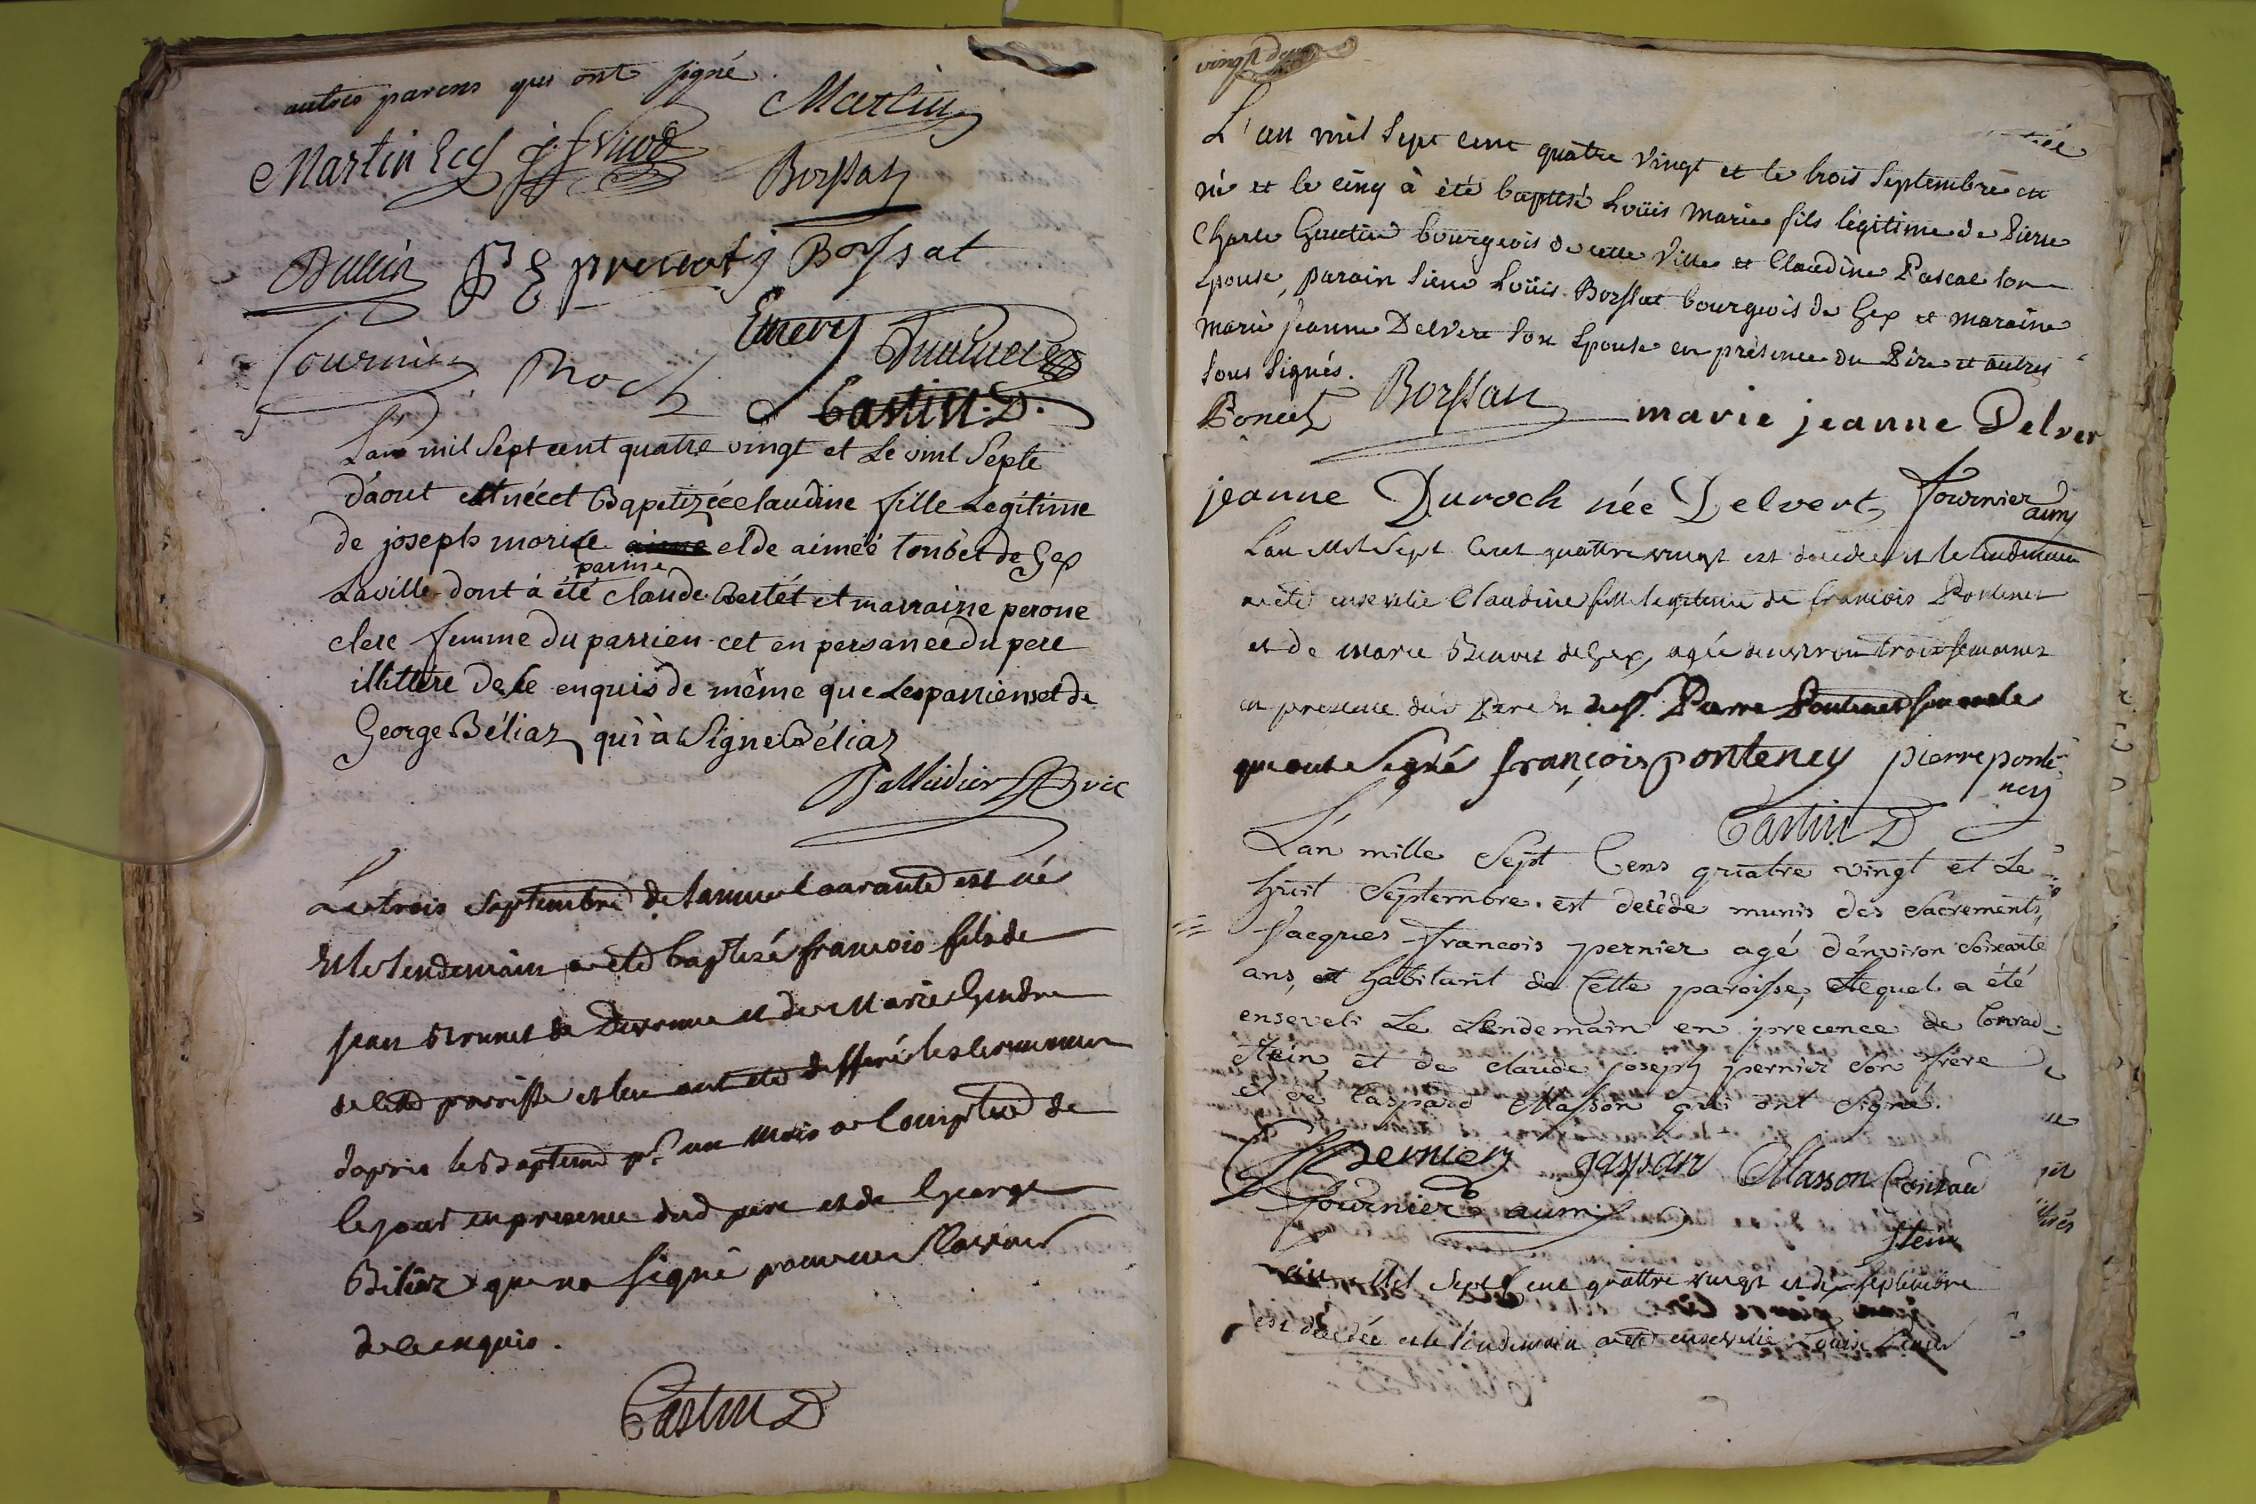 autres parens qui ont signé.
Martin
Martin Ecl
Borssat
Borssat
Fournier
Roch
Emery
Castin D.
L'an mil Sept cent quatre vingt et Le vint Septe
d'aout est néeet Bapetizée claudine fille Legitime
de joseph morise et de aimeé toubét de Gex
parine
Laville dont à été claude Bertét et marraine perone
clerc femme du parrien cet en persance du pere
illittere de le enquis de même que Les parriens et de
George Béliaz qui à Signe Béliaz
Palludier Vic
Le trois septembre de lannee Courante est né
et le lendemain a eté baptisé francois fils de
jean Brunet de Divonne et de Marie Gendre
de cette parroisse et lui ont eté differé les ceremonies
daprès le Bapteme pr un mois a Compter de
le jour en presence dud pere et de George
Béliaz qui na signé pour ne sçavoir
de ce enquis.
Castin D
vingt deux
L'an mil Sept cent quatre vingt et le trois Septembre est
né et le cinq à été baptisé Loüis Marie fils légitime de Pierre
Charle Gautier bourgeois de cette Ville et Claudine Pascal son
Epouse, parain Sieur Loüis Borssat bourgeois de Gex et maraine
Marie jeanne Delvert Son Epouse en présence du Pére et autres
Sous Signés.
Poncet Borssat marie jeanne Delver
jeanne Duroch née Delvert Fournier aumr
Lan Mil Sept Cent quattre vingt est décédée et le lendemain
a eté ensevelie Claudine fille legitime de francois Pontenet
et de Marie Benoit de Gex, agée denviron trois semaines
en presence dud Pere et de Sr. Pierre Pontenet son oncle
qui ont Signé françois ponteney pierre ponte
ney
Castin D
L'an mille Sept Cens quatre vingt et Le
huit Septembre. est decéde munis des Sacrements,
Jacques Francois pernier agé d'énviron Soixante
ans, et habitant de Cette paroisse, Lequel a été
enseveli Le Lendemain en précence de Conrad
Stein, et de claude joseph pernier son frère
et de Gaspard Masson qui ont Signé.
Pernier gaspar Masson Conrad
Stein
Fournier aumr
Mil Sept Cent quattre vingt et dix septembre
est décédée et le lendemain a eté ensevelie Louise